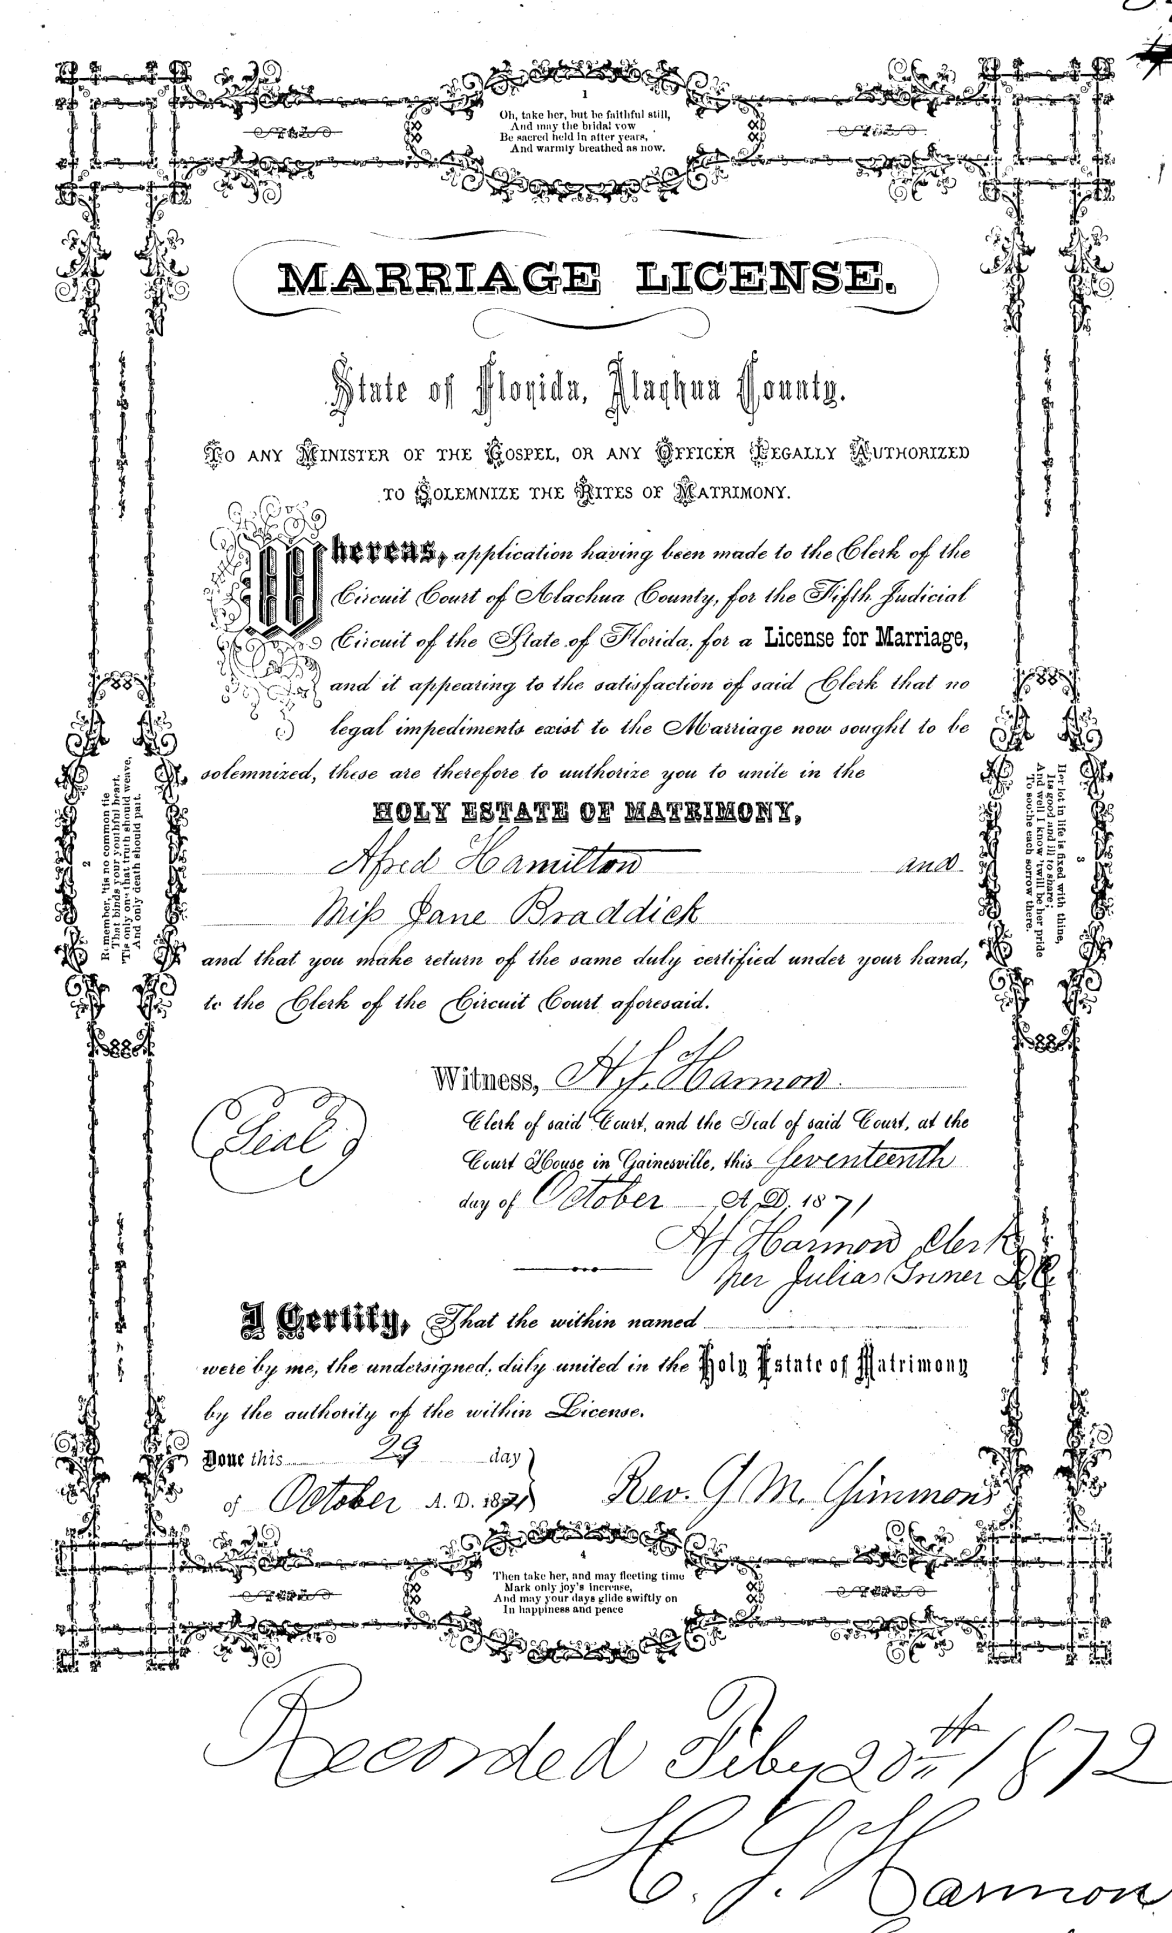 1
Oh, take her, but be faithful still,
And may the bridal vow
Be sacred held in after years,
And warmly breathed as now.
MARRIAGE LICENSE.
State of Florida, Alachua County.
To any Minister of the Gospel, or any Officer Legally Authorized
to Solemnize the Rites of Matrimony.
Whereas, application having been made to the Clerk of the
Circuit Court of Alachua County, for the Fifth Judicial
Circuit of the State of Florida, for a License for Marriage,
and it appearing to the satisfaction of said Clerk that no
legal impediments exist to the Marriage now sought to be
solemnized, these are therefore to authorize you to unite in the
HOLY ESTATE OF MATRIMONY,
Afred Hamilton and
Miss Jane Braddick
and that you make return of the same duly certified under your hand,
to the Clerk of the Circuit Court aforesaid.
2
Remember, 'tis no common tie
That binds your youthful heart,
'Tis only one that truth should weave,
And only death should part.
3
Her lot in life is fixed with thine,
Its good and ill to share;
And well I know 'twill be her pride
To soothe each sorrow there.
Witness, H.S. Harmon
Seal
Clerk of said Court, and the Seal of said Court, at the
Court House in Gainesville, this Seventeenth
day of October A. D. 1871
H S Harmon Clerk
per Julias D.C.
I Certify, That the within named
were by me, the undersigned, duly united in the Holy Estate of Matrimony
by the authority of the within License.
Done this 29 day
of October A. D. 1871
Rev. G M. Gimmons
4
Then take her, and may fleeting time
Mark only joy's increase,
And may your days glide swiftly on
In happiness and peace
Recorded Feby 20th 1872
H. S. Harmon